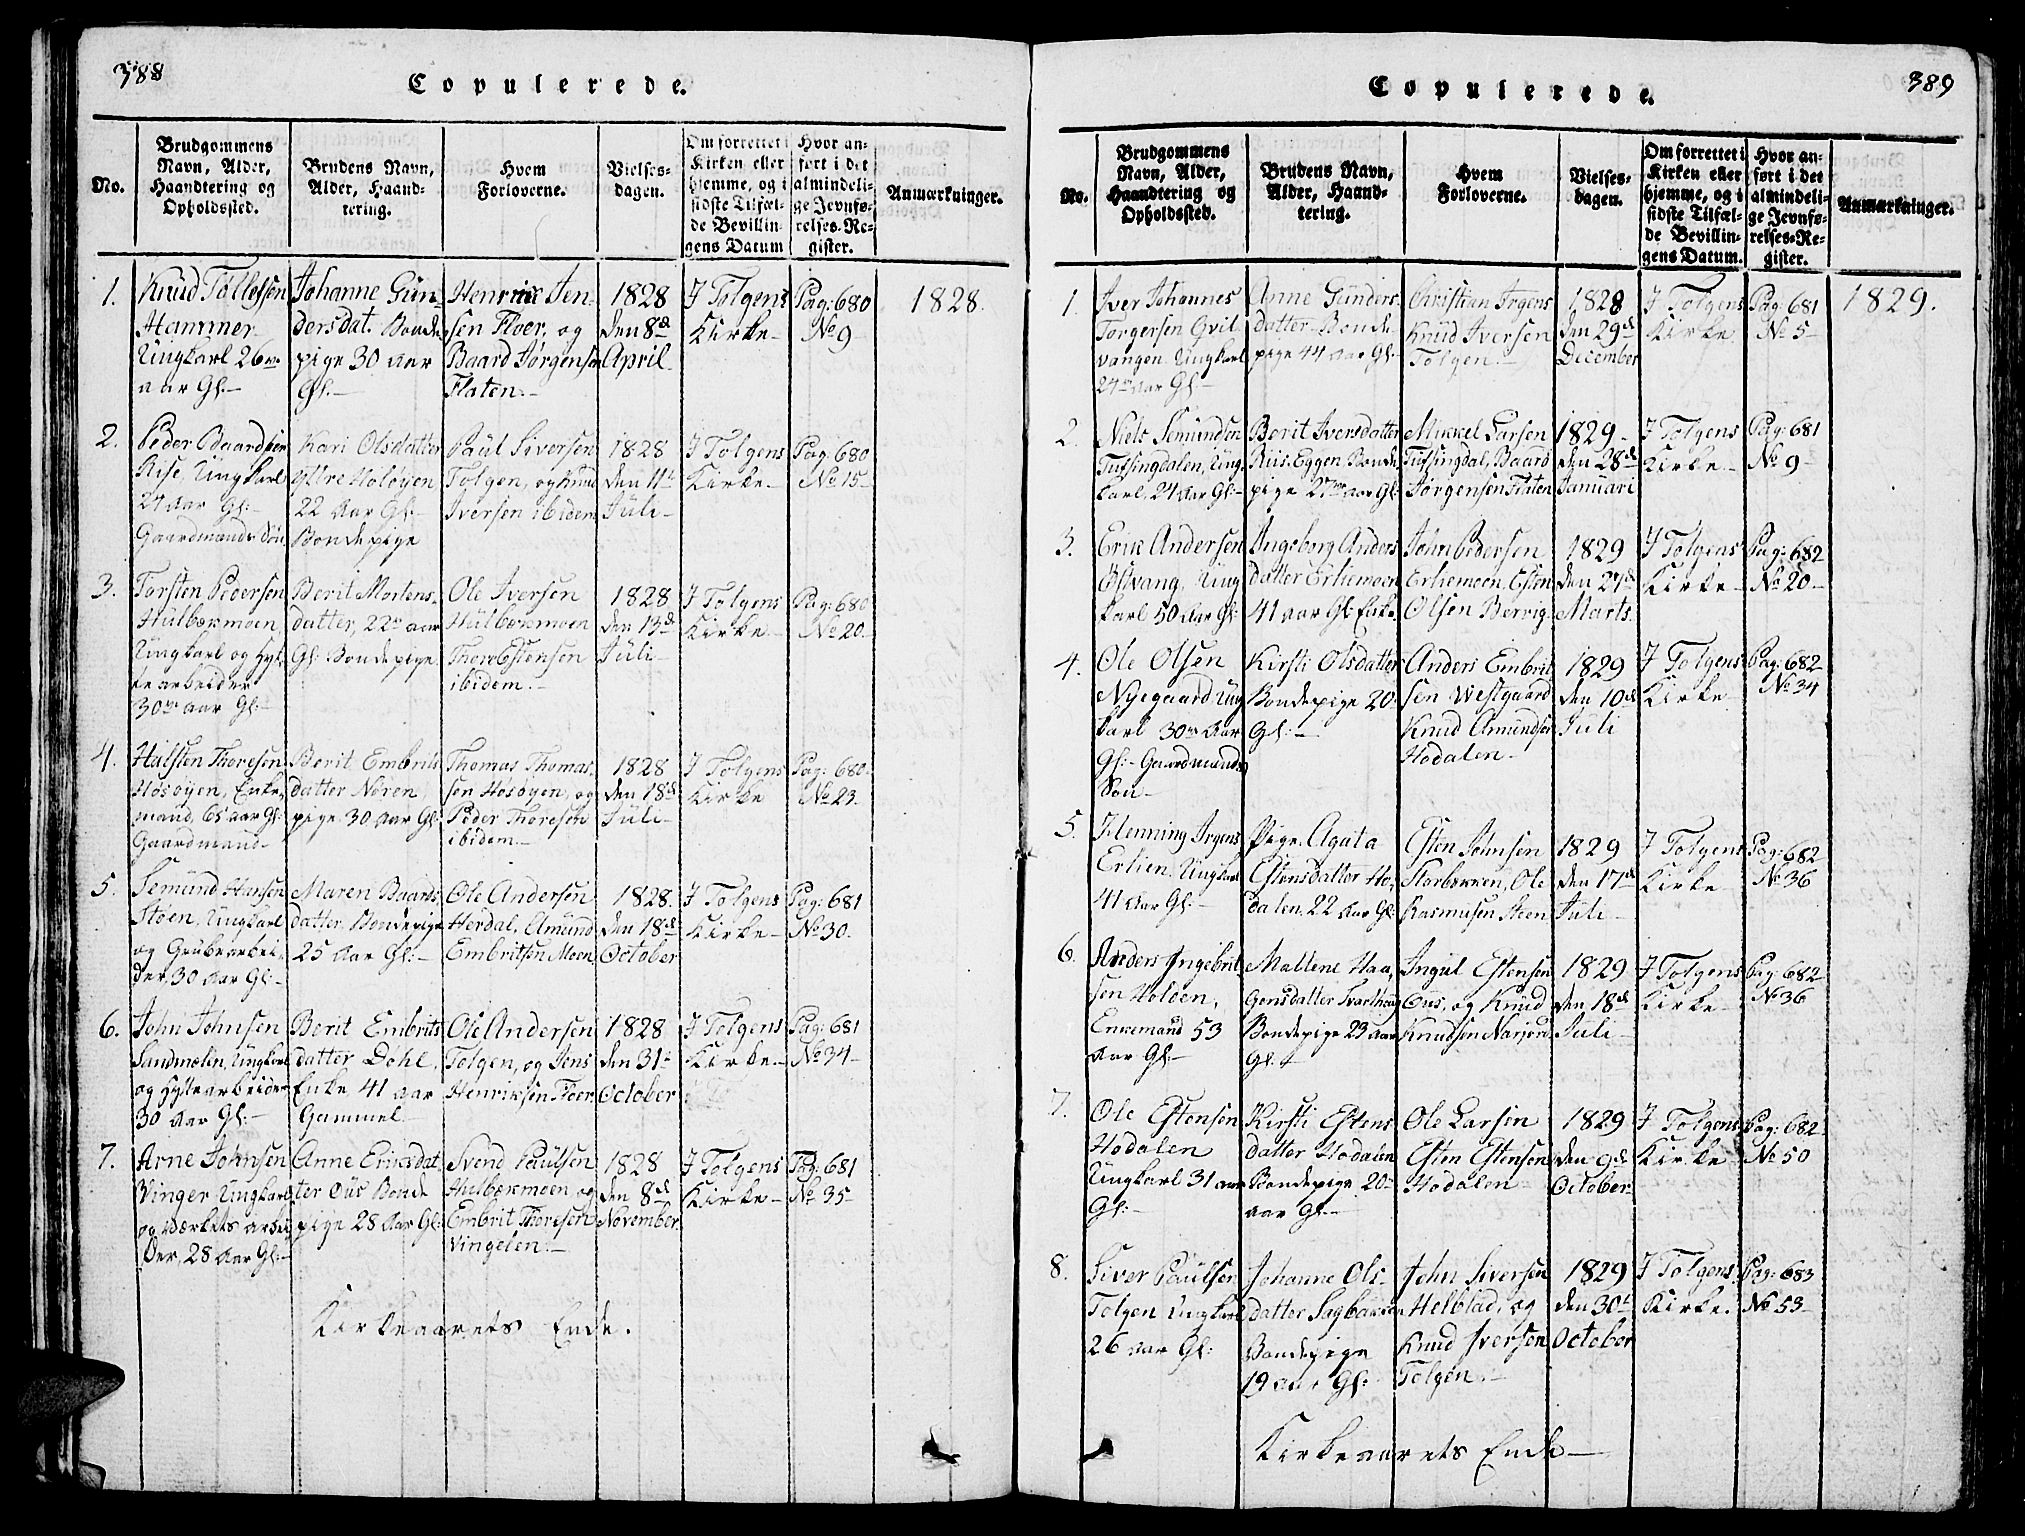 388
Copulerede.
No.
Brudgommens
Navn, Alder,
Haandtering og
Opholdssted.
Brudens Navn,
Alder, Haand-
tering.
Hvem
Forloverne.
Vielses-
dagen.
Om forrettet i
Kirken eller
hjemme, og i
sidste Tilfæl-
de Bevillin-
gens Datum
Hvor an-
ført i det
almindeli-
ge Jevnfø-
relses-Re-
gister.
Anmærkninger.
1.
Knud Tollefsen
Hammer
Ungkarl 26
aar Gl:
Johanne Gun-
dersdat. Bonde
pige 30 aar
Gl:
Henrik Jen-
sen Floer, og
Baard Jørgensen
Flaten.
1828
den 8de
April
J Tolgens
Kirke
Pag: 680
No 9
1828.
2.
Peder Baardsen
Rise, Ungkarl
24 aar Gl:
Gaardmands Søn
Kari Olsdatter
Ytre Holøyen
22 Aar Gl:
Bondepige
Paul Siversen
Tolgen, og Knud
Iversen ibidem
1828
den 11te
Juli
J Tolgens
Kirke
Pag: 680
No 15
3.
Torsten Pedersen
Hulbækmoen
Ungkarl og Hyt-
tearbeider
30 aar Gl:
Berit Mortens-
datter, 22 aar
Gl: Bondepige
Ole Iversen
Hulbækmoen
Thore Estensen
ibidem.
1828
den 13de
Juli
J Tolgens
Kirke
Pag: 680
No 20
4.
Halsten Thoresen
Hosøyen, Enke-
mand, 65 aar Gl:
Gaardmand
Berit Embrits
datter Noren
pige 30 Aar Gl:
Thomas Thomas-
sen Hosøyen, og
Peder Thoresen
ibidem.
1828
den 18de
Juli
J Tolgens
Kirke
Pag: 680
No 23
5.
Semund Hansen
Støen, Ungkarl
og Grubearbei-
der, 30 Aar Gl:
Maren Baards
datter, Bondepige
25 Aar Gl:
Ole Andersen
Herdal, Amund
Embritsen Moen
1828.
den 18de
October
J Tolgens
Kirke
Pag: 681
No 30.
6.
John Johnsen
Sandmælen, Ungkarl
og Hyttearbeider
30 Aar Gl:
Berit Embrits
datter Dohl,
Enke 41 aar
Gammel
Ole Andersen
Tolgen, og Jens
Henriksen Floer
1828
den 31te
October
J Tolgens
Kirke
Pag: 681
No 34
7.
Arne Johnsen
Vinger Ungkarl
og Værkets arbei
der, 28 Aar Gl:
Anne Eriksdat
ter Ous Bonde
pige 28 Aar Gl:
Svend Paulsen
Hulbækmoen, og
Embrit Thoresen
Vingelen.
1828
den 8de
November
J Tolgens
Kirke
Pag: 681
No 35
Kirkeaarets Ende.
389
Copulerede.
No.
Brudgommens
Navn, Alder,
Haandtering og
Opholdssted.
Brudens Navn,
Alder, Haand-
tering.
Hvem
Forloverne.
Vielses-
dagen.
Om forrettet i
Kirken eller
hjemme, og i
sidste Tilfæl-
de Bevillin-
gens Datum.
Hvor an-
ført i det
almindeli-
ge Jevnfø-
relses-Re-
gister.
Anmærkninger.
1.
Iver Johannes
Torgersen Qvil
vangen Ungkarl
24 Aar Gl:
Anne Gunders
datter Bonde
pige 44 Aar Gl:
Christian Irgens
Knud Iversen
Tolgen.
1828
den 29de
December
J Tolgens
Kirke
Pag: 681
No 5
1829.
2.
Niels Semundsen
Tufsingdalen, Ung-
karl, 24 Aar Gl:
Berit Iversdatter
Riis-Eggen Bonde
pige 27 aar Gl:
Mikkel Larsen
Tufsingdal, Baard
Jørgensen Flaten
1829
den 28de
Januari
J Tolgens
Kirke
Pag: 681
No 9
3.
Erik Andersen
Østvang, Ung
karl 50 Aar Gl:
Ingeborg Anders
datter Erliemoen
41 aar Gl: Enke
John Pedersen
Erliemoen, Esten
Olsen Bervig
1829
den 27de
Marts.
J Tolgens
Kirke
Pag: 682
No 20
4.
Ole Olsen
Nyegaard Ung
karl 30 Aar
Gl: Gaardmands
Søn
Kirsti Olsdatter
Bondepige 20
Gl:
Anders Embrit
sen Westgaard
Knud Amundsen
Hodalen
1829
den 10de
Juli
J Tolgens
Kirke
Pag: 682
No 34
5.
Henning Irgens
Erlien, Ungkarl
41 Aar Gl:
Pige Agata
Estensdatter Ho-
dalen, 22 Aar Gl:
Esten Johnsen
Storbekken, Ole
Rasmusen Steen
1829
den 17de
Juli
J Tolgens
Kirke
Pag: 682
No 36
6.
Anders Ingebrit
sen Holden,
Enkemand 53
Aar Gl:
Maltene Haa-
gensdatter Svarthaug
Bondepige 23 aar
Gl:
Ingul Estensen
Ous, og Knud
Knudsen Narjord
1829
den 18de
Juli
J Tolgens
Kirke
Pag: 682
No 36
7.
Ole Estensen
Hodalen
Ungkarl 31 aar
Gl:
Kirsti Estens
datter Hodalen
Bondepige 20
aar Gl:
Ole Larsen
Esten Estensen
Hodalen
1829
den 9de
October
J Tolgens
Kirke
Pag: 682
No 50
8.
Siver Paulsen
Tolgen Ungkarl
26 aar Gl:
Johanne Ols-
datter Sagbakken
Bondepige
19 aar Gl:
John Siversen
Helblad, og
Knud Iversen
Tolgen.
1829
den 30te
October
J Tolgens
Kirke.
Pag: 683
No 53
Kirkeaarets Ende